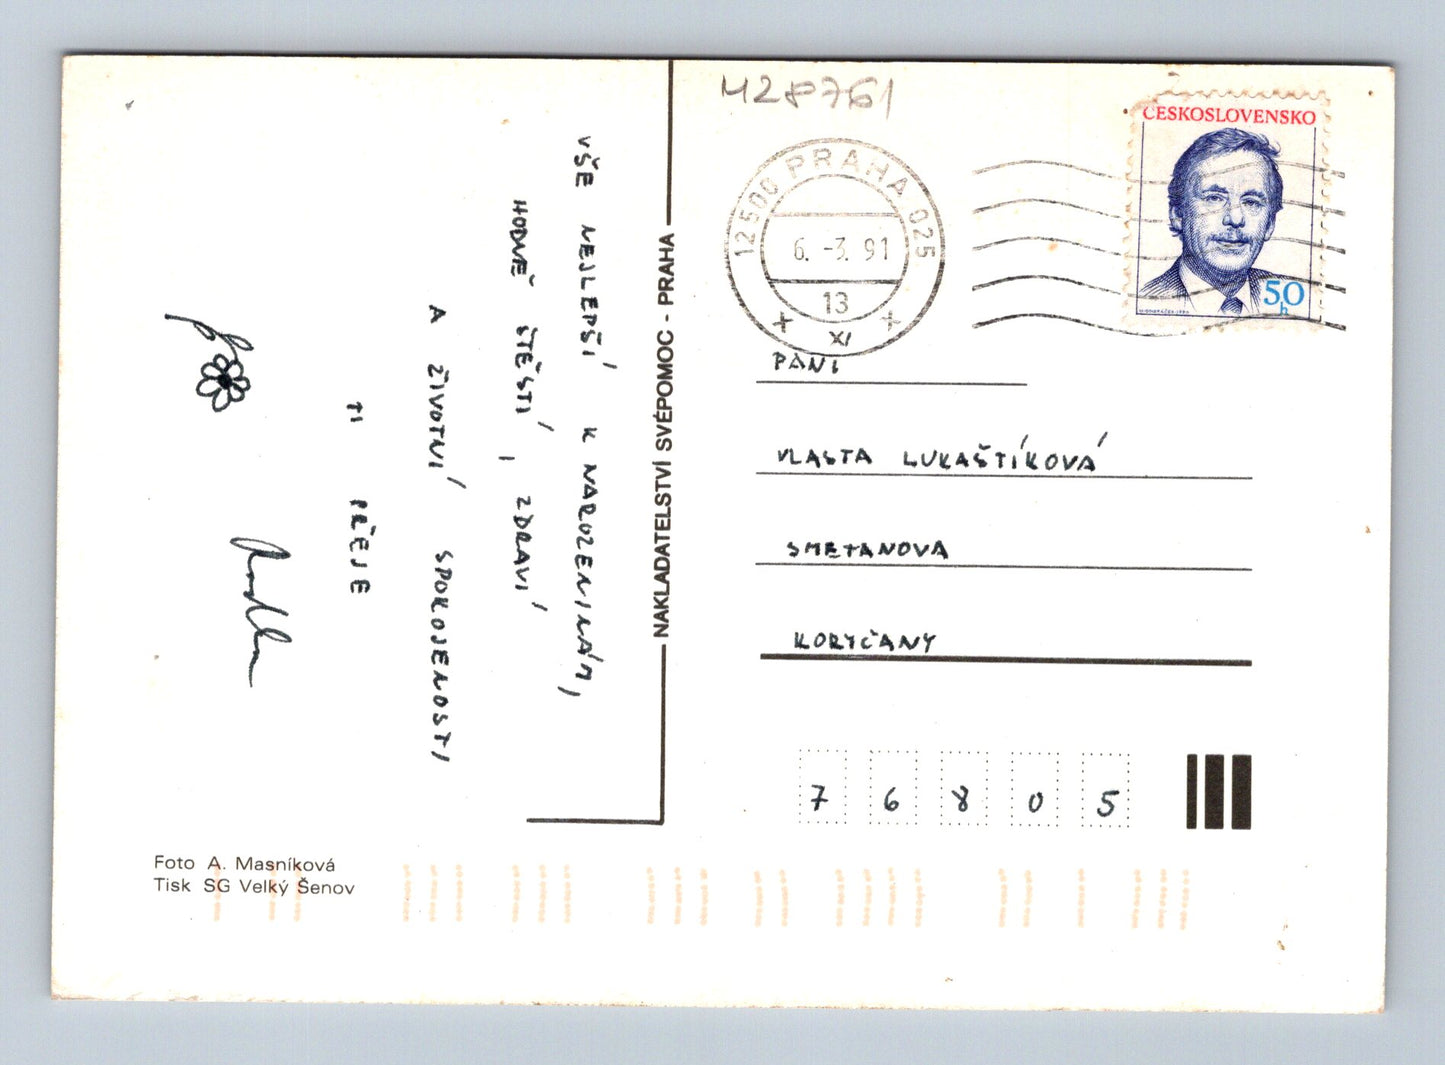 M28761
12500 PRAHA 025
6. -3. 91
13
XI
ČESKOSLOVENSKO
50
h
VŠE NEJLEPŠÍ K NAROZENINÁM,
HODNĚ ŠTĚSTÍ, ZDRAVÍ
A ŽIVOTNÍ SPOKOJENOSTI
TI PŘEJE
Radka
NAKLADATELSTVÍ SVÉPOMOC - PRAHA
PANÍ
VLASTA LUKAŠTÍKOVÁ
SMETANOVA
KORYČANY
7 6 8 0 5
Foto A. Masníková
Tisk SG Velký Šenov